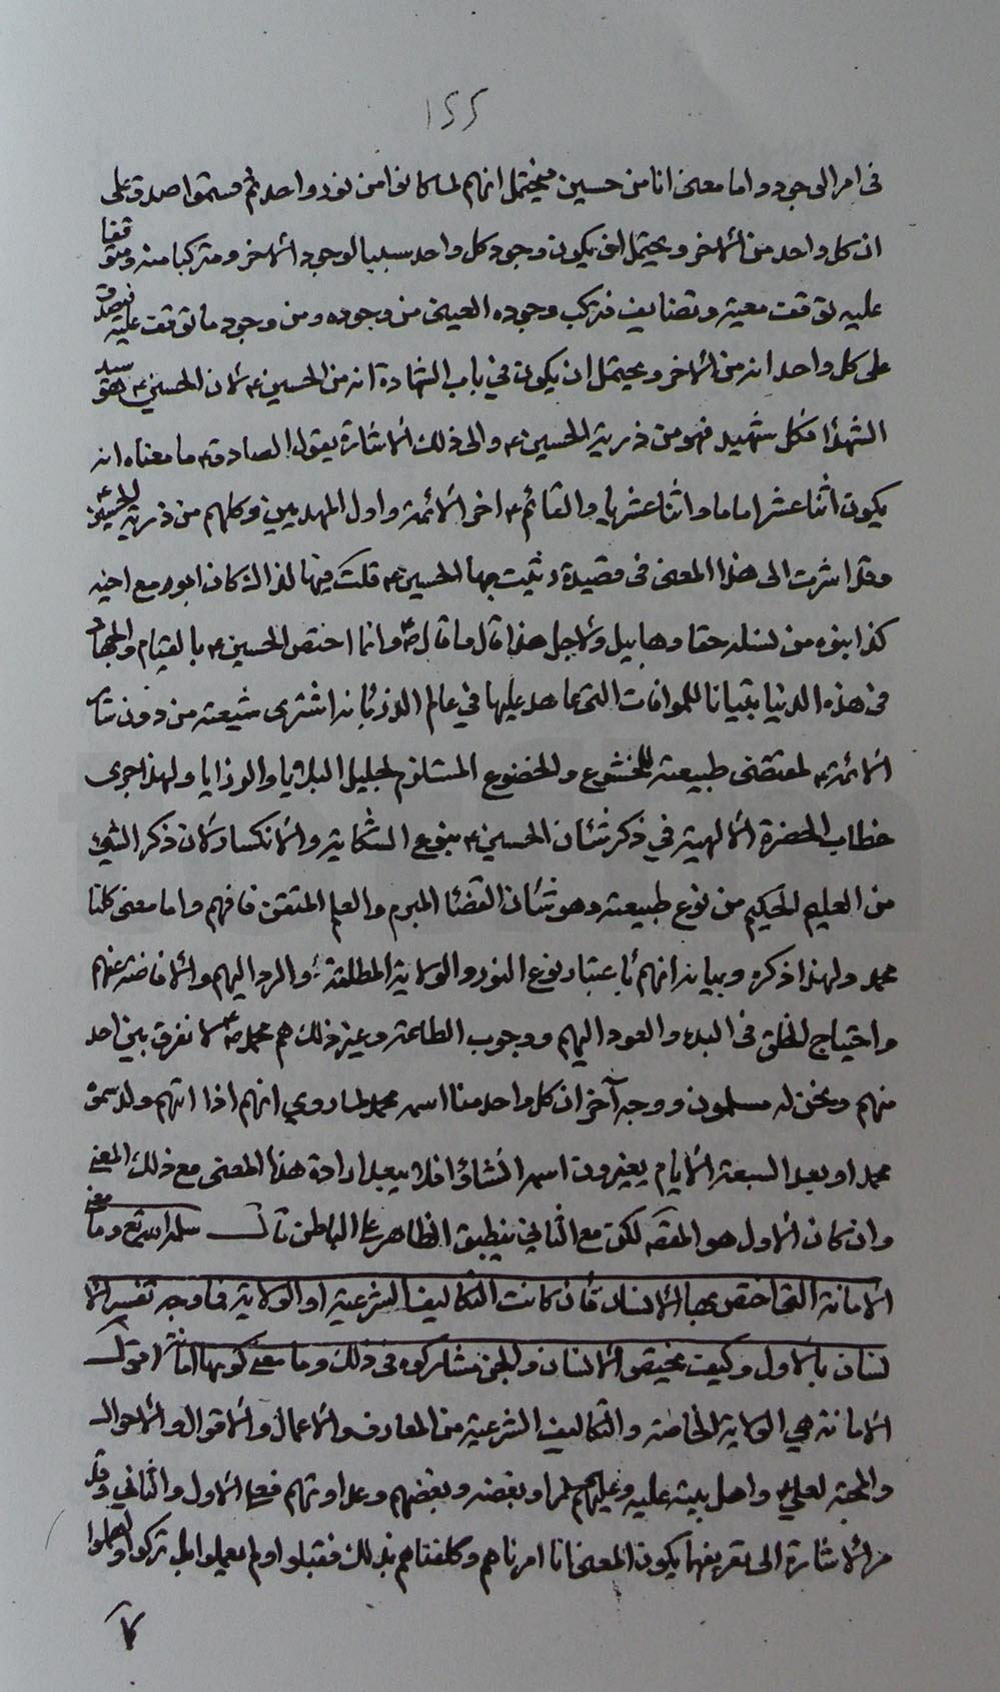 ١٢٢
فى امر الوجود واما معنى انا من حسين فيحتمل انهم لما كانوا من نور واحد ثم قسموا صدق على
ان كل واحد من الاخر ويحتمل ان يكون وجود كل واحد سببا لوجود الاخر ومتركبا منه ومتوقفا
عليه توقف معية وتضايف فتركب وجوده العينى من وجوده ومن وجود ما توقف عليه فيصدق
على كل واحد انه من الاخر ويحتمل ان يكون فى باب الشهادة انه من الحسين ع لان الحسين ع هو سيد
الشهدا فكل شهيد فهو من ذرية الحسين ع والى ذلك الاشارة بقول الصادق ع ما معناه انه
يكون اثنا عشر اماما واثنا عشر مهديا والقائم ع اخر الائمة واول المهديين وكلهم من ذرية الحسين ع
وقد اشرت الى هذا المعنى فى قصيدة رثيت بها الحسين ع قلت فيها لذاك كان ابوه مع اخيه
كذا بنوه من نسله حقا وهابيل ولاجل هذا قال ما قال ص وانما اختص الحسين ع بالقيام والجهاد
فى هذه الدنيا بتيانا للموافات التى عاهد عليها فى عالم الذر بانه اشترى شيعته من دون سائر
الائمة ع لمقتضى طبيعته للخشوع والخضوع المستلزم لجليل البلايا والرزايا ولهذا جرى
خطاب الحضرة الالهية فى ذكر شئان الحسين ع بنوع الشكاية والانكسار لان ذكر الشئ
من العليم الحكيم من نوع طبيعته وهو شئان القضا المبرم والعلم المتقن فافهم واما معنى كلنا
محمد ولهذا ذكره وبيانه انهم باعتبار نوع النور والولاية المطلقة والرد اليهم والافاضة عنهم
واحتياج الخلق فى البدء والعود اليهم ووجوب الطاعة وغير ذلك هم محمد ص لا نفرق بين احد
منهم ونحن له مسلمون ووجه آخر ان كل واحد منا اسمه محمد لما روي انهم اذا اتاهم ولد سموه
محمد او بعد السبعة الايام يغيرون اسمه ان شاؤا فلا يبعد ارادة هذا المعنى مع ذلك المعنى
وان كان الاول هو المقصد لكن مع الثانى ينطبق الظاهر على الباطن قال سلمه الله تع وما معنى
الامانة التى اختص بها الانسان فان كانت التكاليف الشرعية او الولاية فما وجه تفسير الا
نسان بالاول وكيف يختص الانسان والجن مشاركوه فى ذلك وما معنى كونها امانة اقول
الامانة هي الولاية الخاصة والتكاليف الشرعية من المعارف والاعمال والاقوال والاحوال
والمحبة لعلي ع واهل بيته عليه وعليهم السلم او بغضه وبغضهم وعداوتهم فعلى الاول والثاني وقد
مر الاشارة الى تعريفها يكون المعنى انا امرناهم وكلفناهم بذلك فقبلوا ولم يعملوا بل تركوا واهملوا